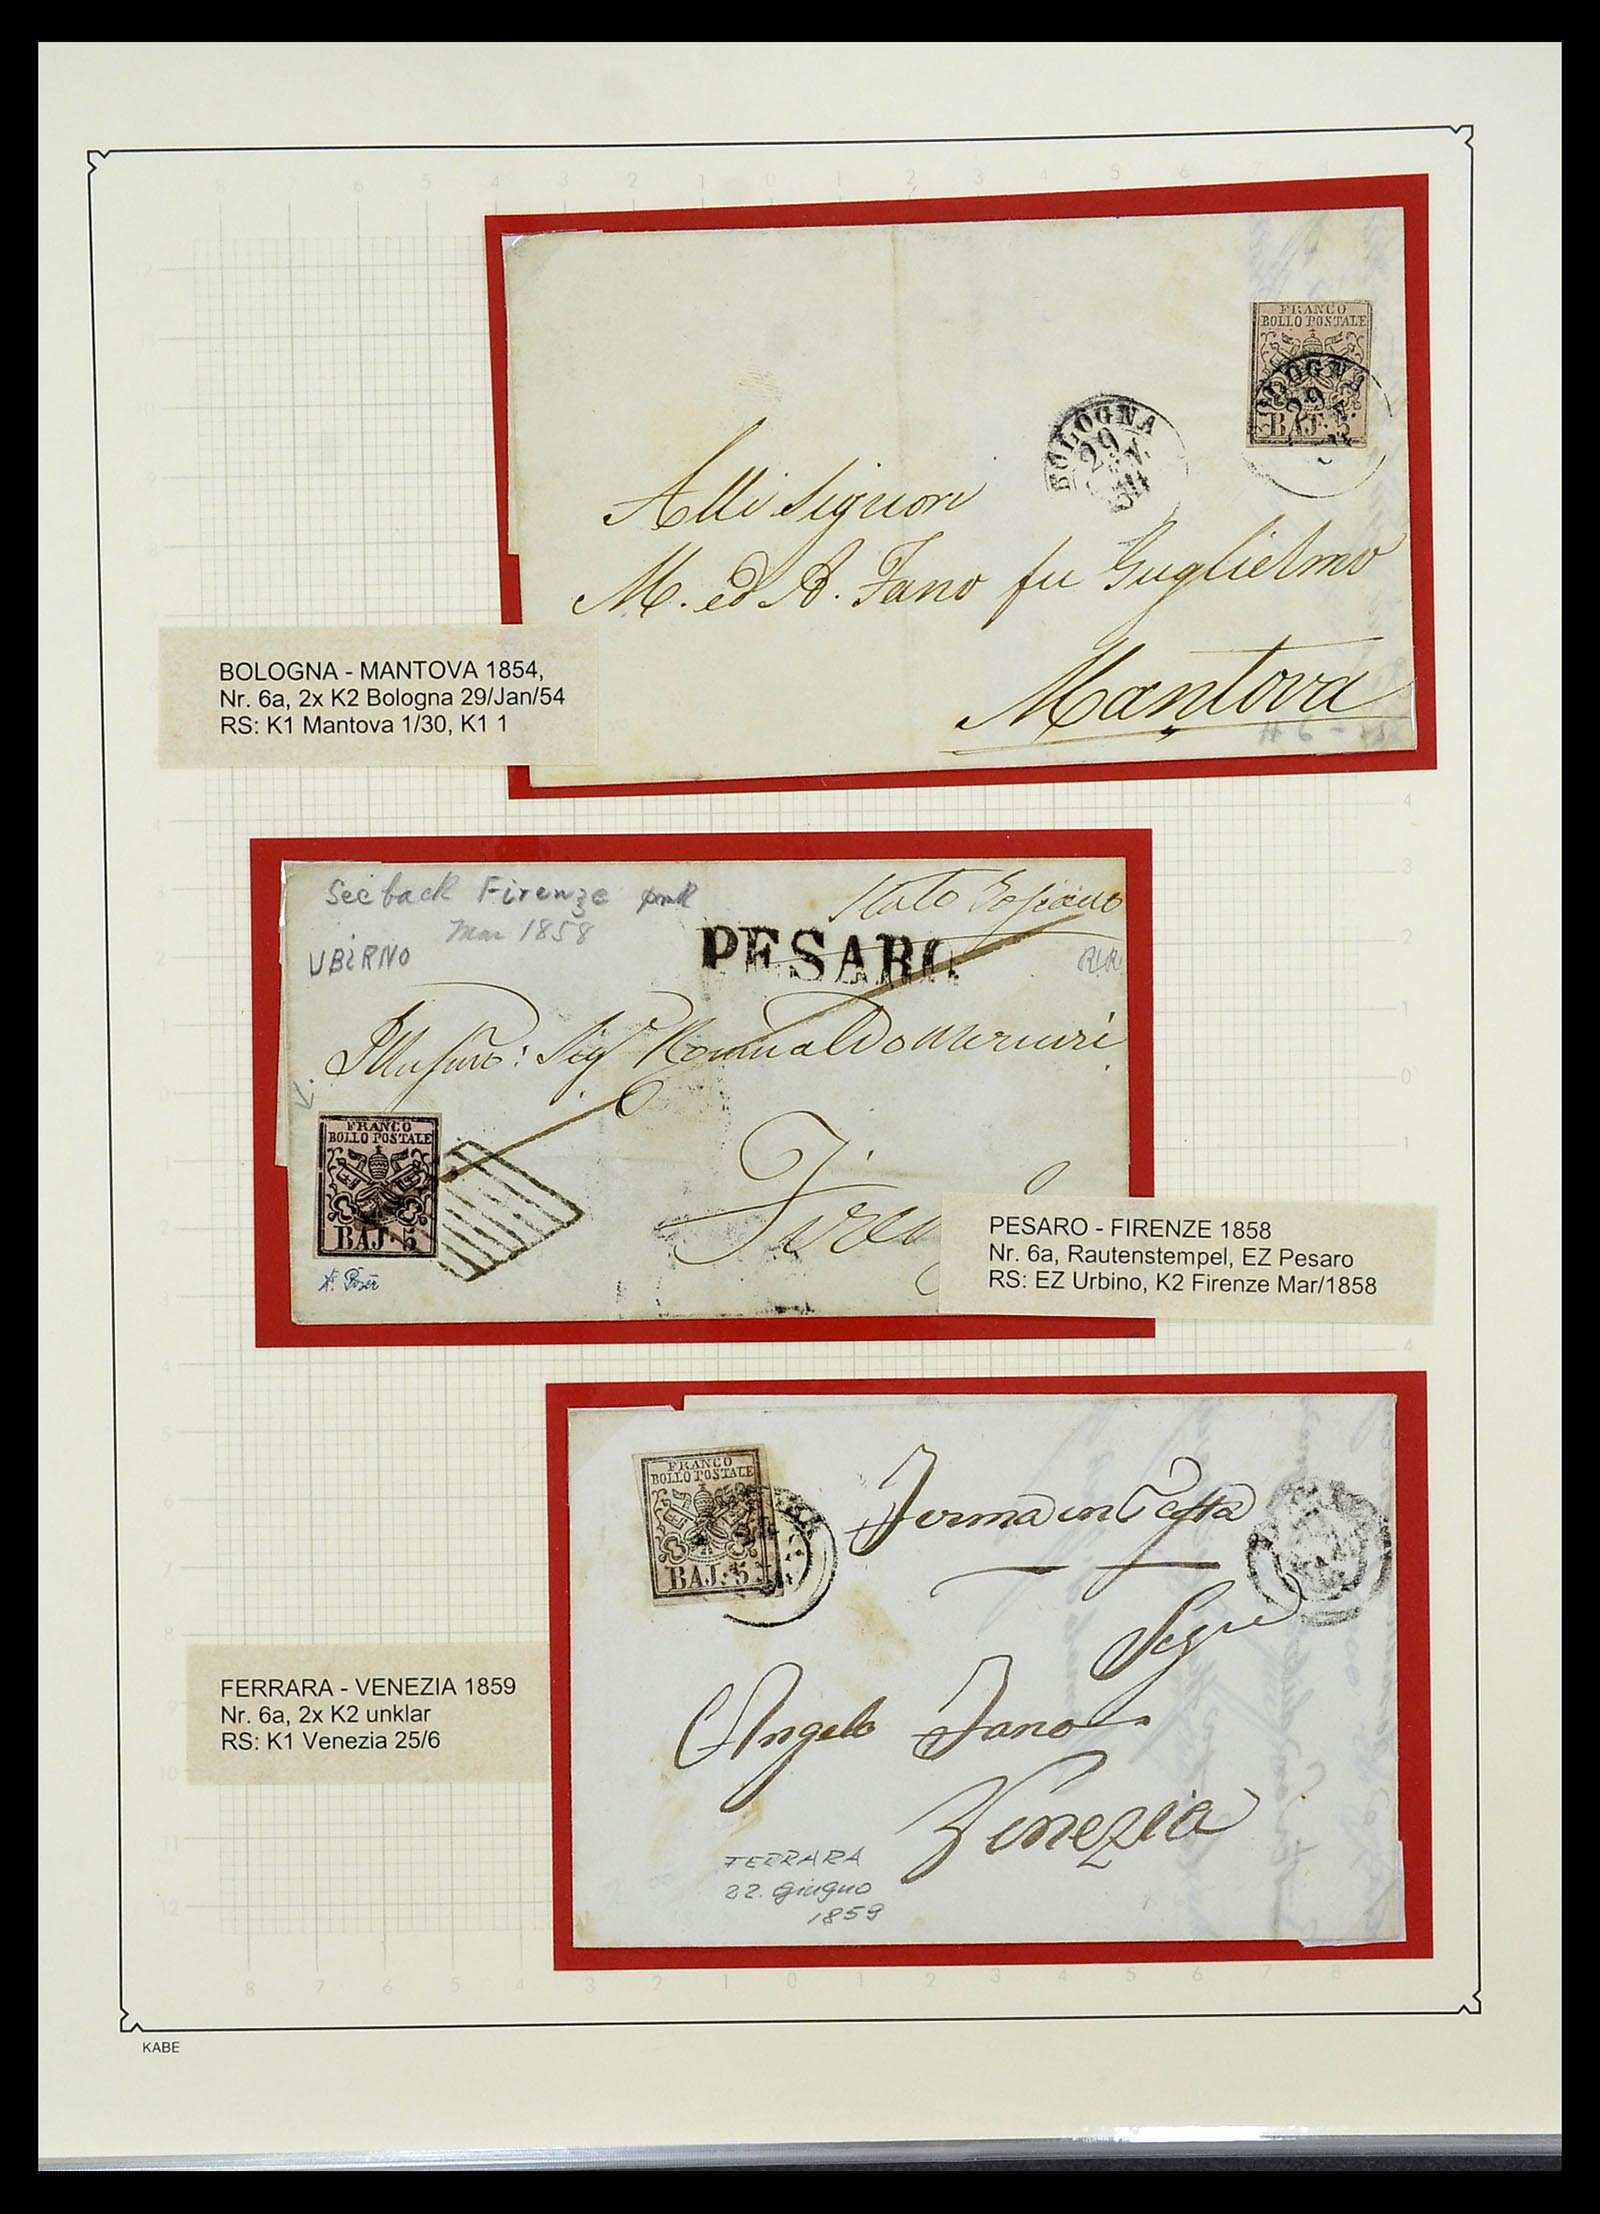 FRANCO
BOLLO POSTALE
BOLOGNA
BAJ. 5
BOLOGNA
29
Alli Signori
M. ed A. Fano fu Guglielmo
Mantova
BOLOGNA - MANTOVA 1854,
Nr. 6a, 2x K2 Bologna 29/Jan/54
RS: K1 Mantova 1/30, K1 1
See back Firenze pmk
Mar 1858
UBIRNO
Stato
PESARO
Sigr Romualdo Mercuri
FRANCO
BOLLO POSTALE
BAJ. 5
PESARO - FIRENZE 1858
Nr. 6a, Rautenstempel, EZ Pesaro
RS: EZ Urbino, K2 Firenze Mar/1858
FRANCO
BOLLO POSTALE
BAJ. 5
Ferma in Posta
Angelo Fano
Venezia
FERRARA
22. Giugno
1859
FERRARA - VENEZIA 1859
Nr. 6a, 2x K2 unklar
RS: K1 Venezia 25/6
KABE